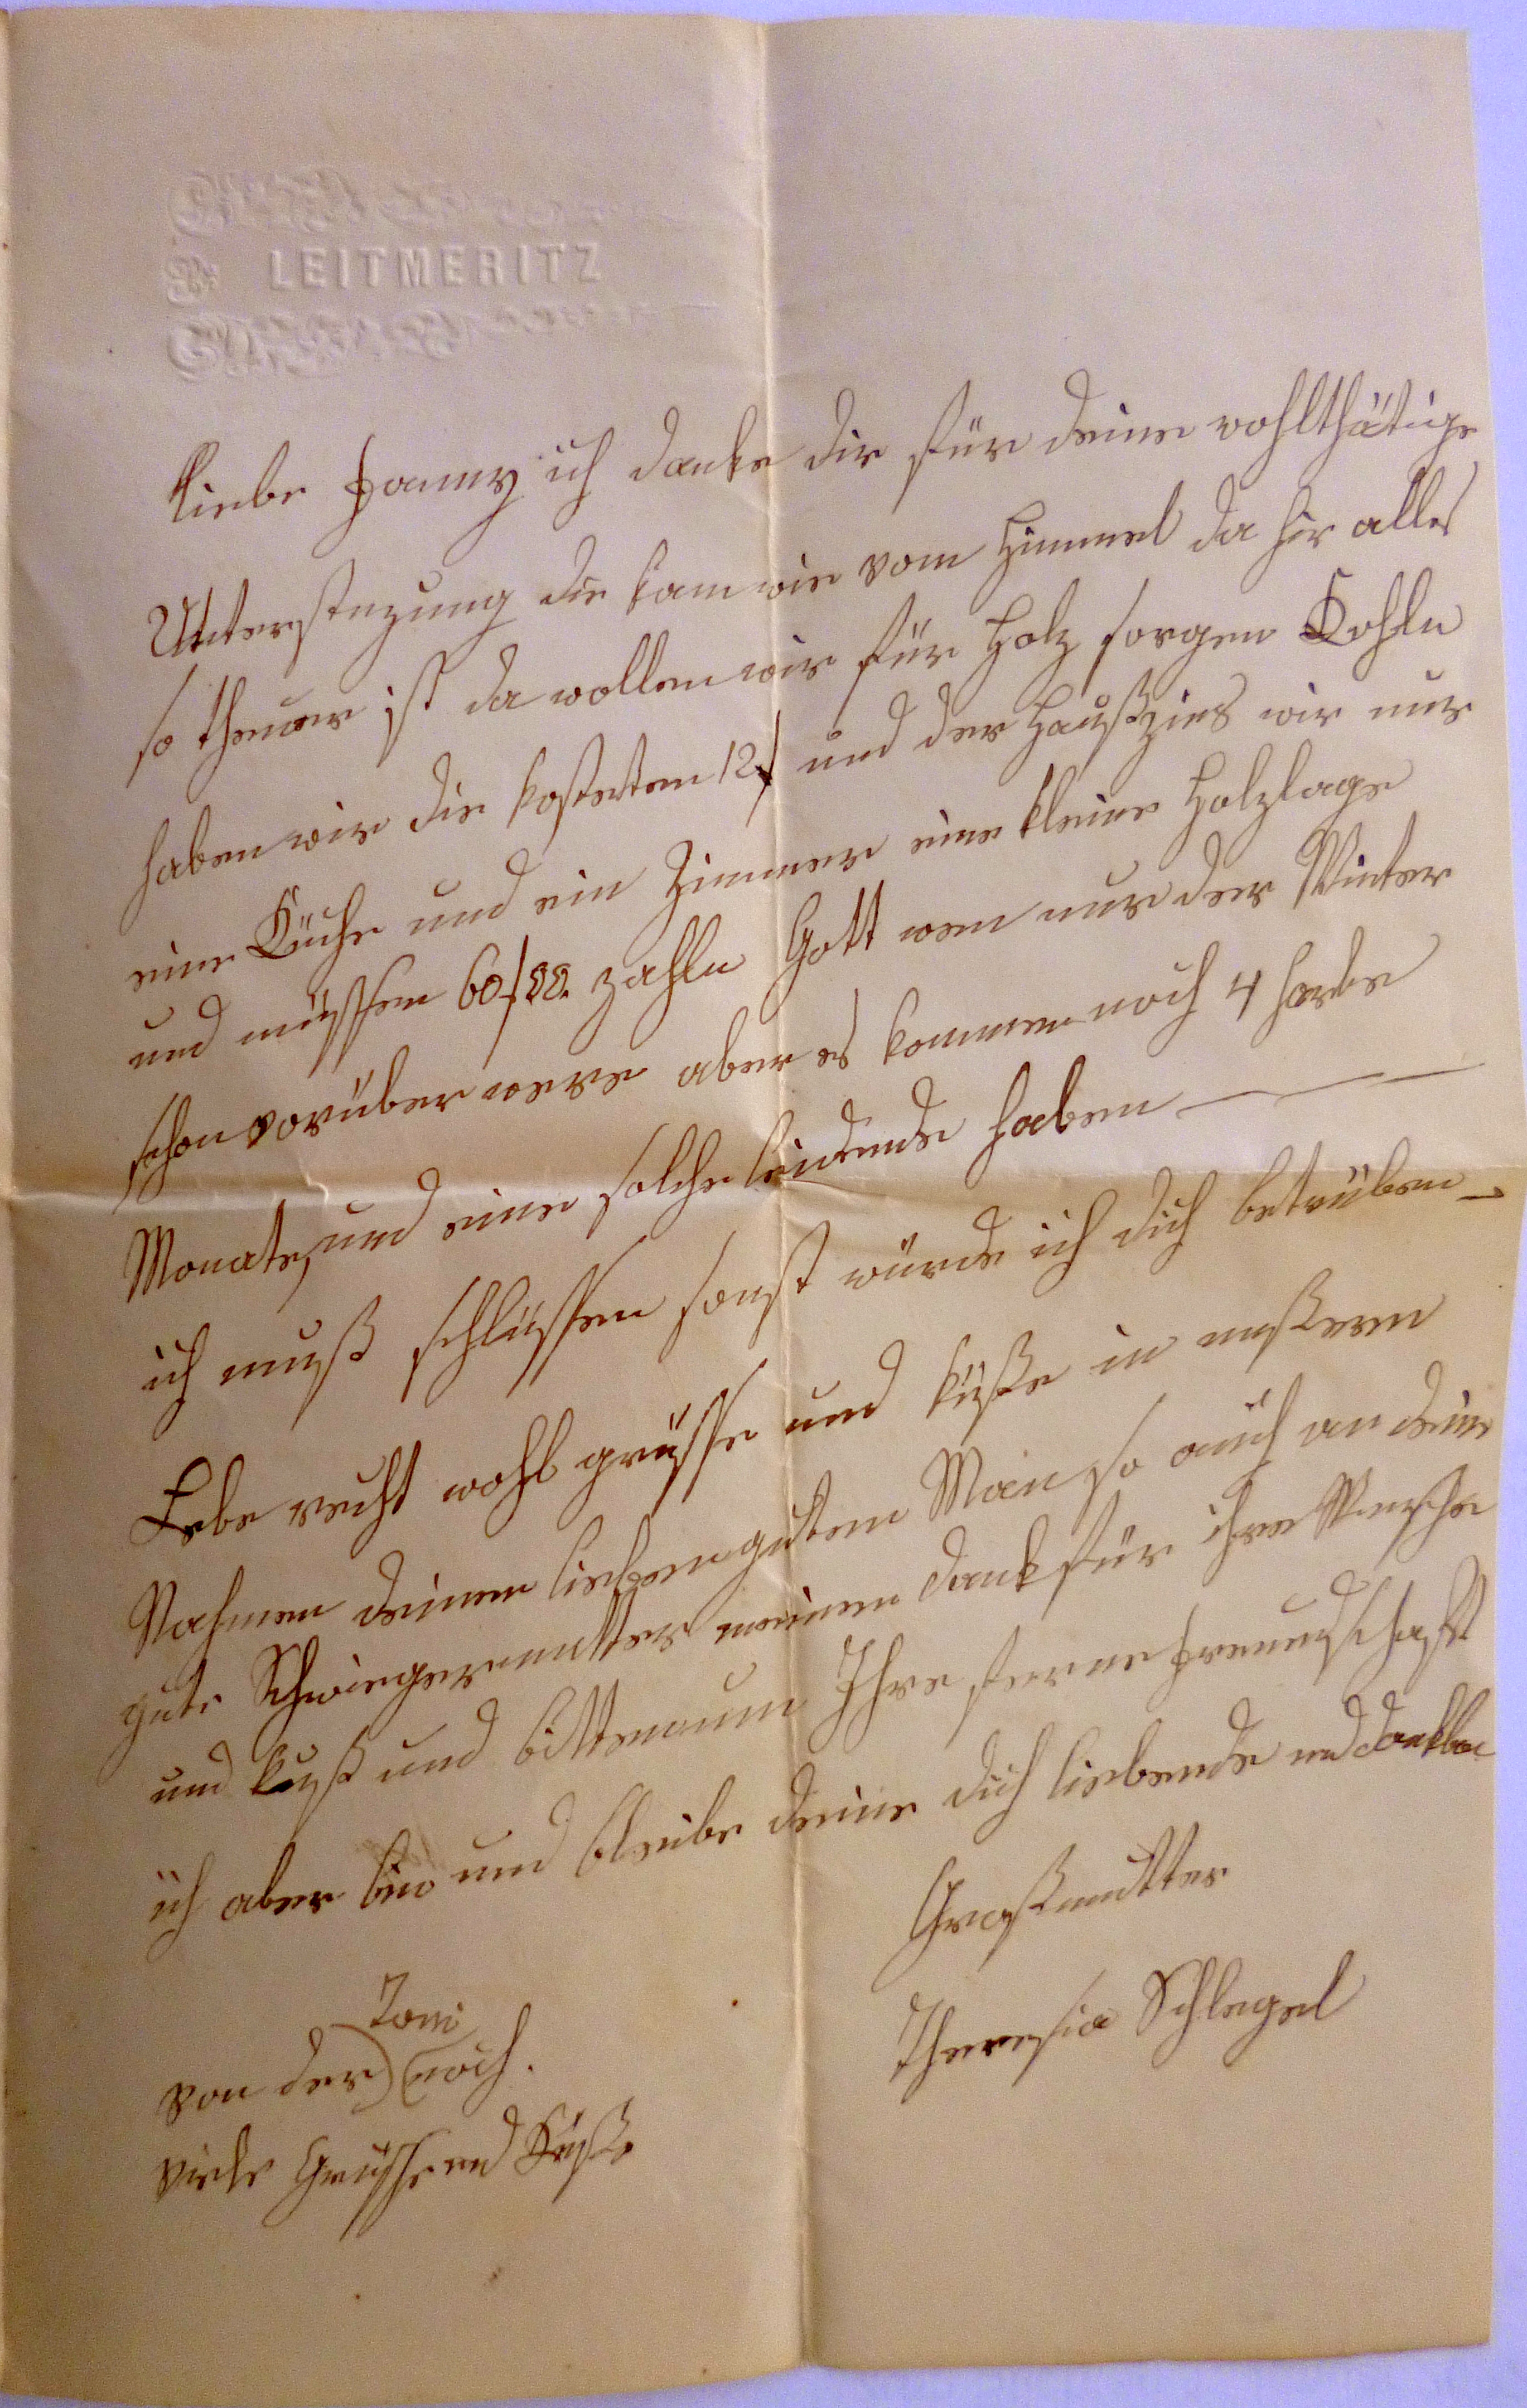 LEITMERITZ
liebe Fanny ich danke dir für deine wohlthätige
Unterstuzung die kam wie vom Himmel da hir alles
so theuer ist da wollen wir für Holz sorgen Kohln
haben wir die kosteten 12 f und der Haußzins wir nur
eine Küche und ein Zimmer eine kleine Holzlage
und müssen 60 f zahln Gott wen nur der Winter
schon vorüber were aber es kommen noch 4 harbe
Monate, und eine solche leidende haben
ich muß schlüssen sonst würde ich dich betrüben
Lebe recht wohl grüsse und küße in unßeren
Nahmen deinen lieben guten Man so auch an deine
gute Schwiegermutter meinen dank für ihre
und kuß und bitten um Ihre ferne freundschaft
ich aber bin und bleibe deine dich liebende und dankbar
Großmutter
Theresia Schlegel
Toni
von der noch.
viele Grüsse und Küße